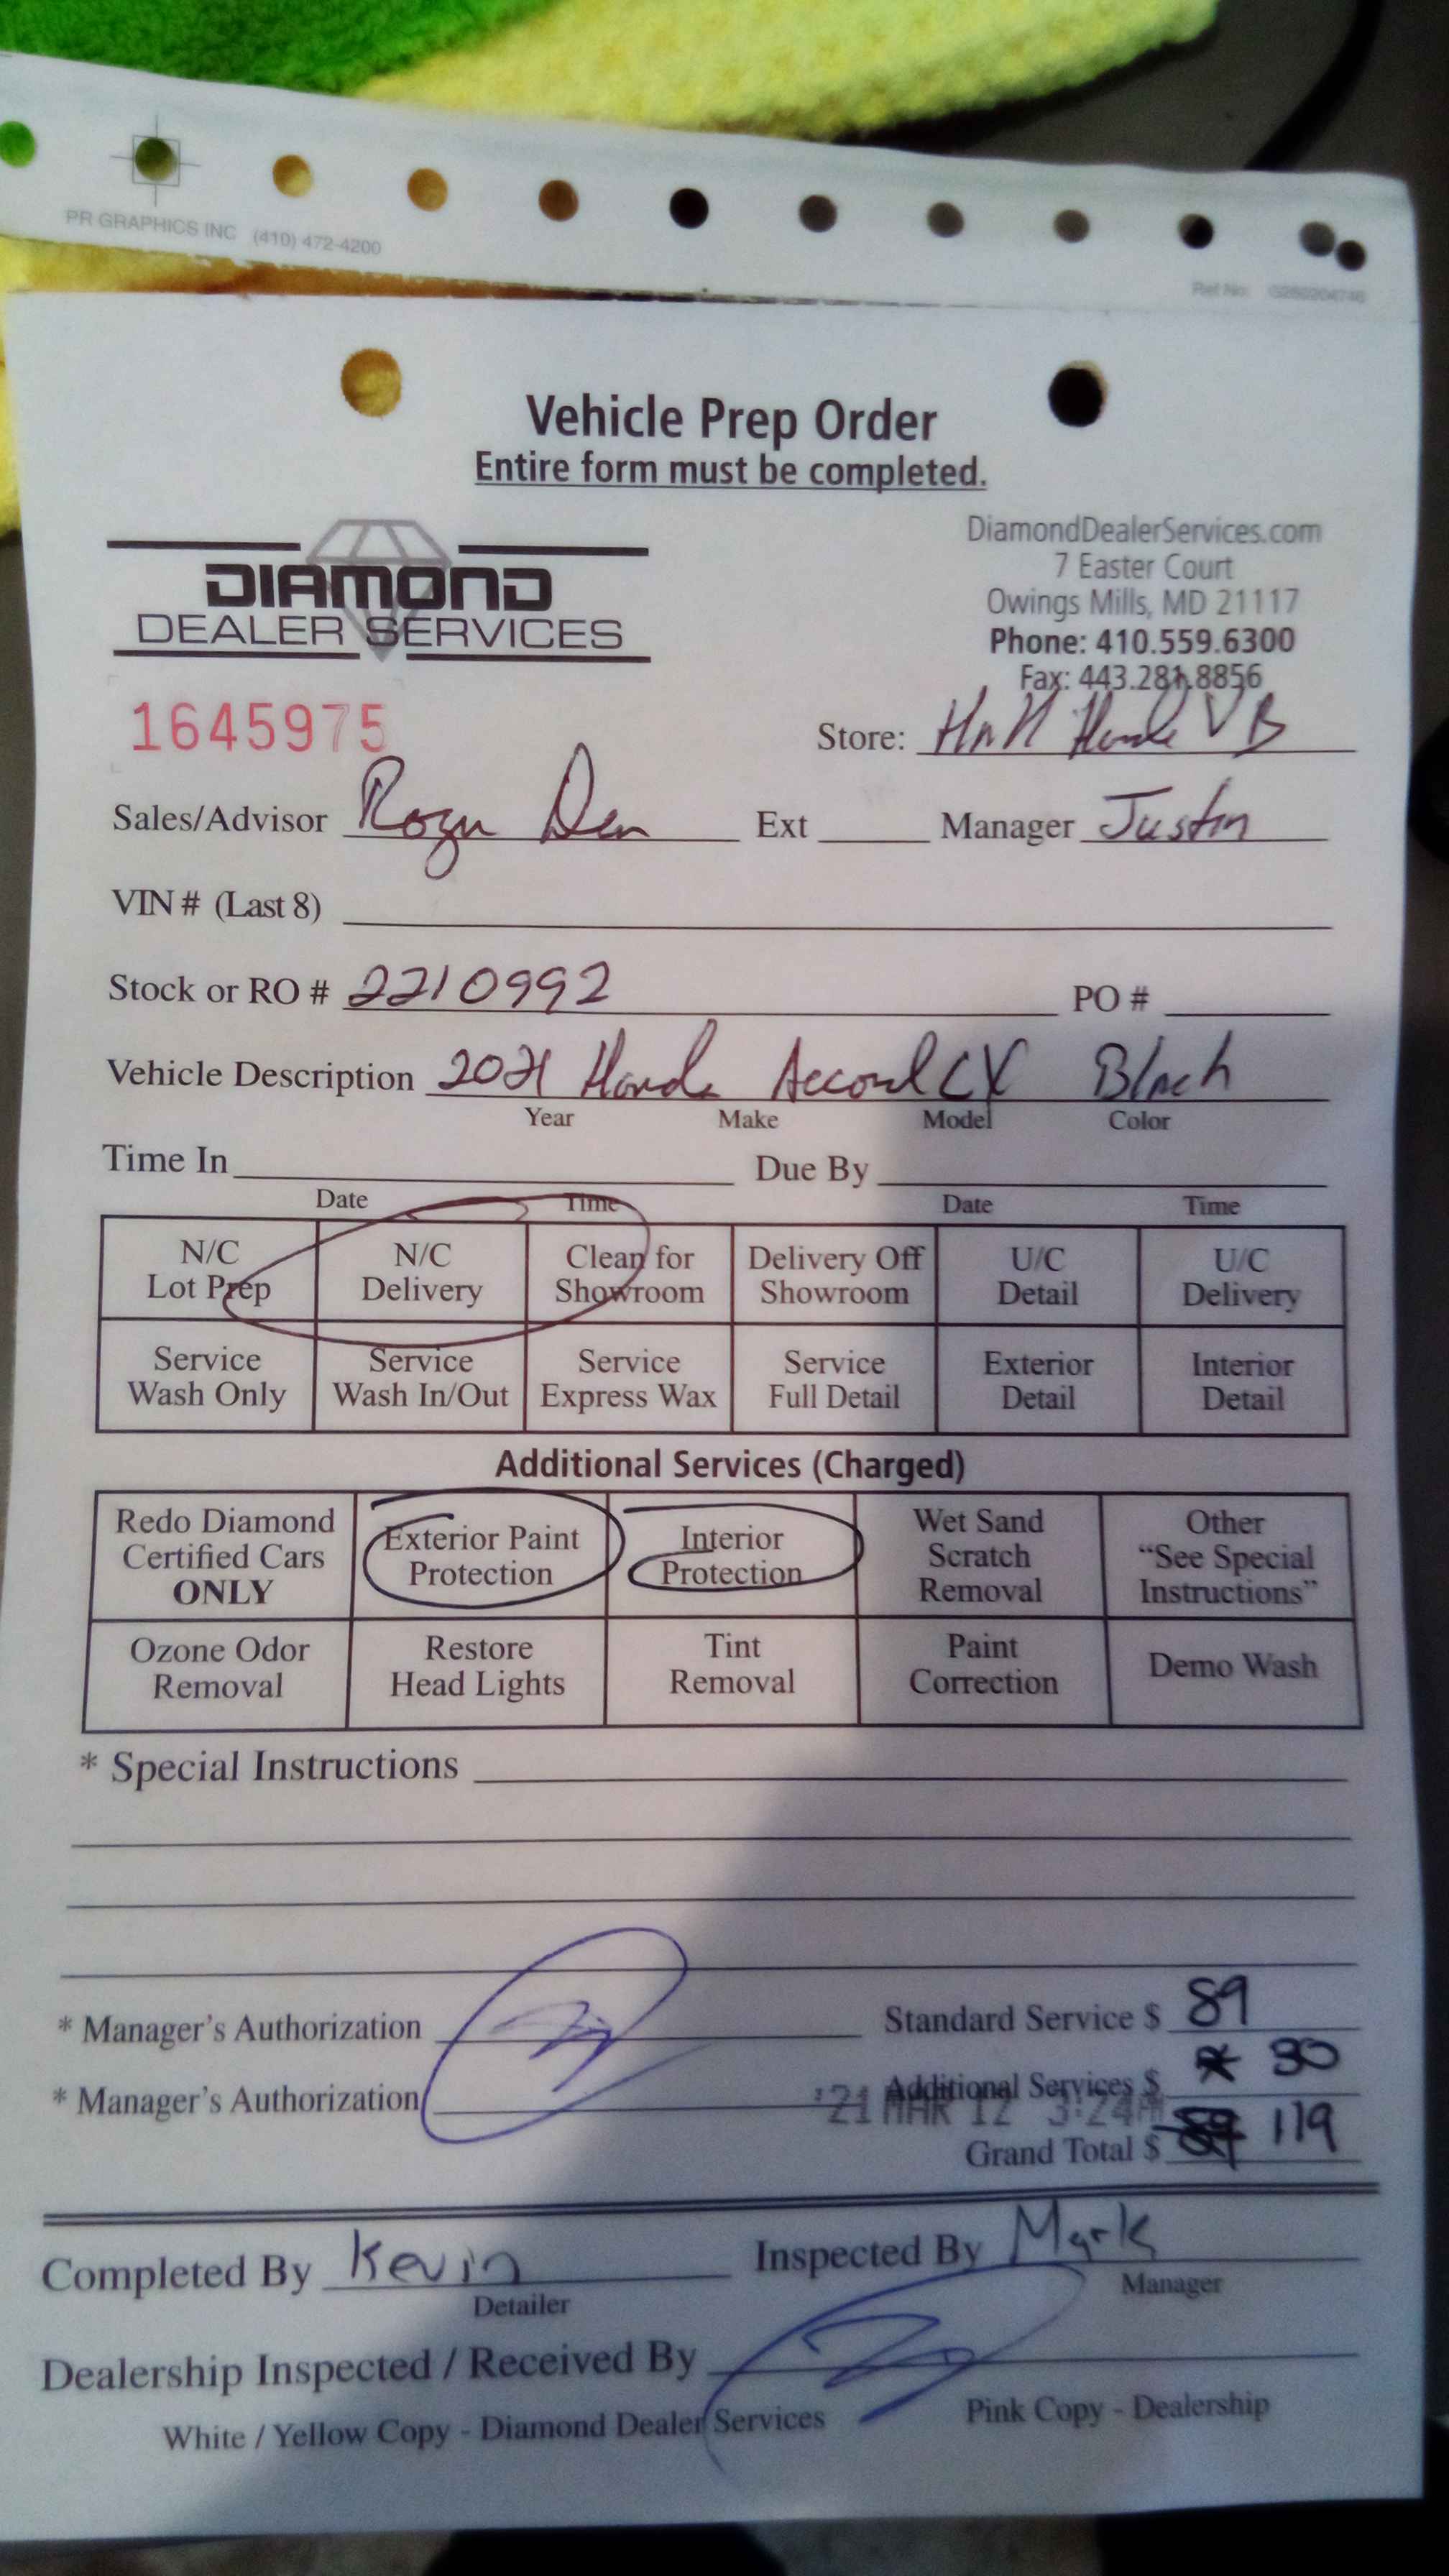 PR GRAPHICS INC (410) 472-4200
Ref No:
Vehicle Prep Order
Entire form must be completed.
DIAMOND
DEALER SERVICES
DiamondDealerServices.com
7 Easter Court
Owings Mills, MD 21117
Phone: 410.559.6300
Fax: 443.281.8856
1645975
Store: Hall Honda VB
Sales/Advisor Ext Manager Justin
VIN # (Last 8)
Stock or RO # 2210992 PO #
Vehicle Description 2021 Honda Accord Black
Year Make Model Color
Time In Due By
Date Time Date Time
N/C Lot Prep N/C Delivery Clean for Showroom Delivery Off Showroom U/C Detail U/C Delivery
Service Wash Only Service Wash In/Out Service Express Wax Service Full Detail Exterior Detail Interior Detail
Additional Services (Charged)
Redo Diamond Certified Cars ONLY Exterior Paint Protection Interior Protection Wet Sand Scratch Removal Other "See Special Instructions"
Ozone Odor Removal Restore Head Lights Tint Removal Paint Correction Demo Wash
* Special Instructions
* Manager's Authorization Standard Service $ 89
* Manager's Authorization Additional Services $ 30
'21 MAR 12 3:24
Grand Total $ 119
Completed By Kevin Inspected By Mark
Detailer Manager
Dealership Inspected / Received By
White / Yellow Copy - Diamond Dealer Services Pink Copy - Dealership